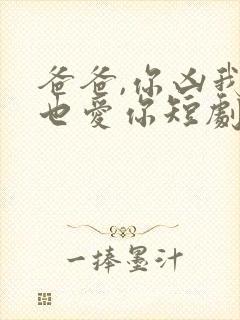 爸爸,你凶我
也愛你短劇
一捧墨汁